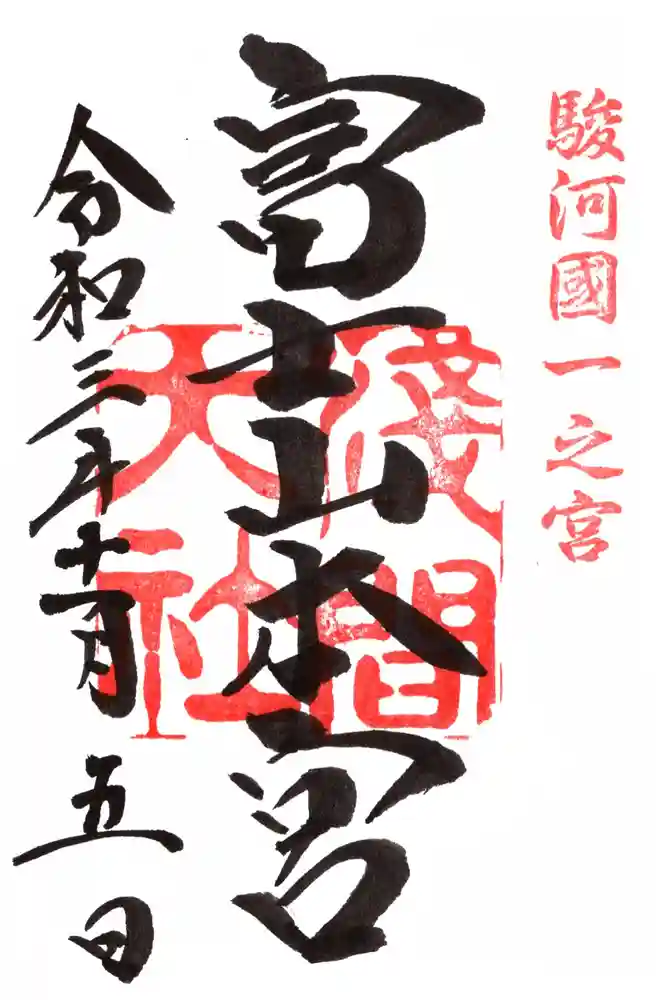 駿河國一之宮
富士山本宮
淺間大社
令和三年十一月五日